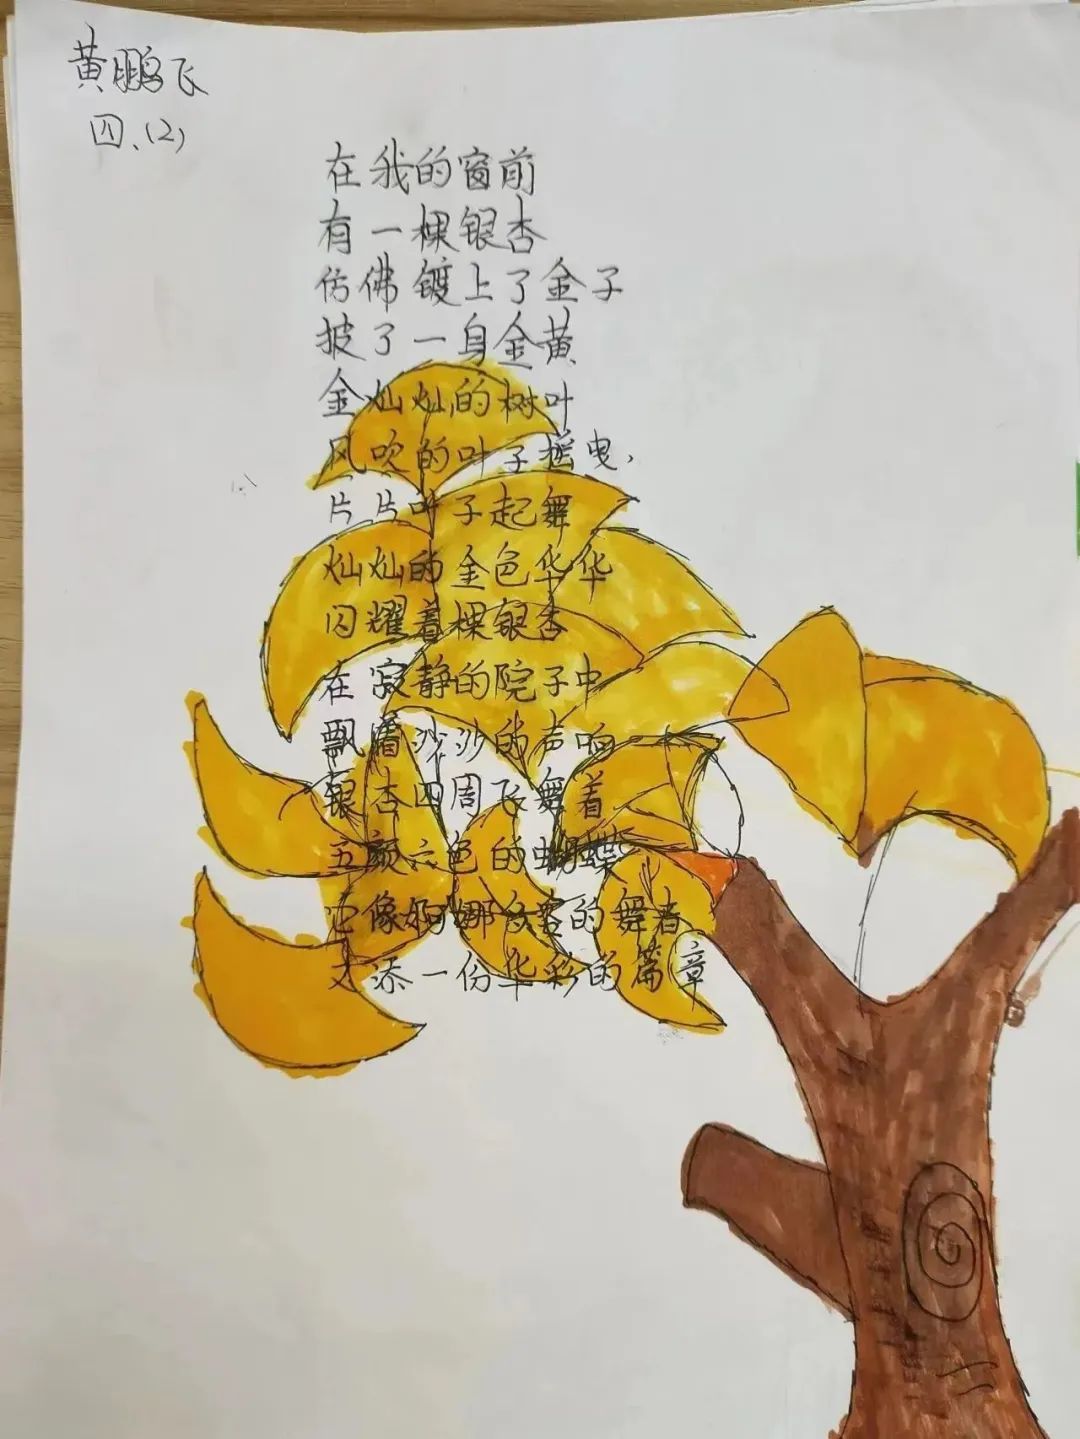 黄鹏飞
四、(2)
在我的窗前
有一棵银杏
仿佛镀上了金子
披了一身金黄
金灿灿的树叶
风吹的叶子摇曳,
片片叶子起舞
灿灿的金色华华
闪耀着棵银杏
在寂静的院子中
飘着沙沙的声响
银杏四周飞舞着
五颜六色的蝴蝶
它像婀娜多姿的舞者
又添一份华彩的篇章